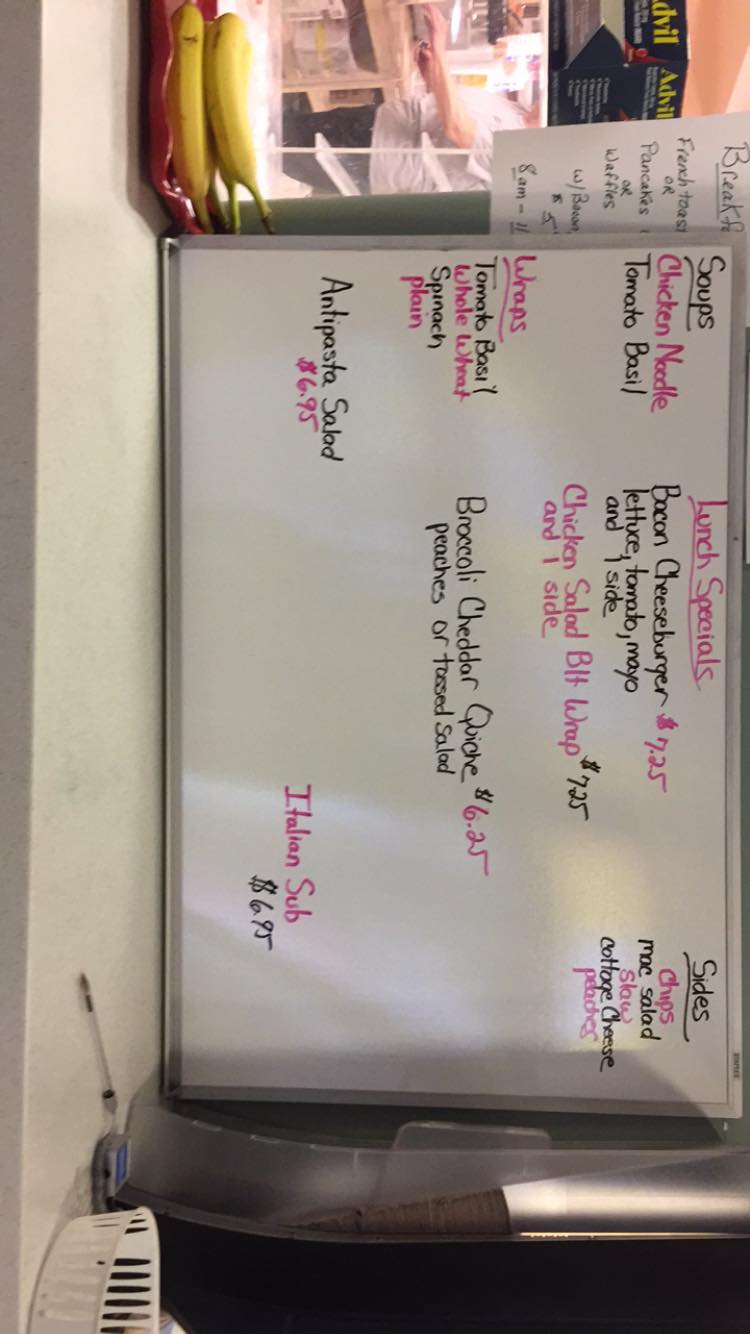 Soups
Chicken Noodle
Tomato Basil
Wraps
Tomato Basil
Whole Wheat
Spinach
plain
Antipasta Salad
$6.95
Lunch Specials
Bacon Cheeseburger $7.25
lettuce, tomato, mayo
and 1 side
Chicken Salad Blt Wrap $7.25
and 1 side
Broccoli Cheddar Quiche $6.25
peaches or tossed salad
Italian Sub
$6.95
Sides
chips
mac salad
slaw
cottage Cheese
peaches
French toast
OR
Pancakes
OR
Waffles
w/Bacon,
8am -
Advil
Advil